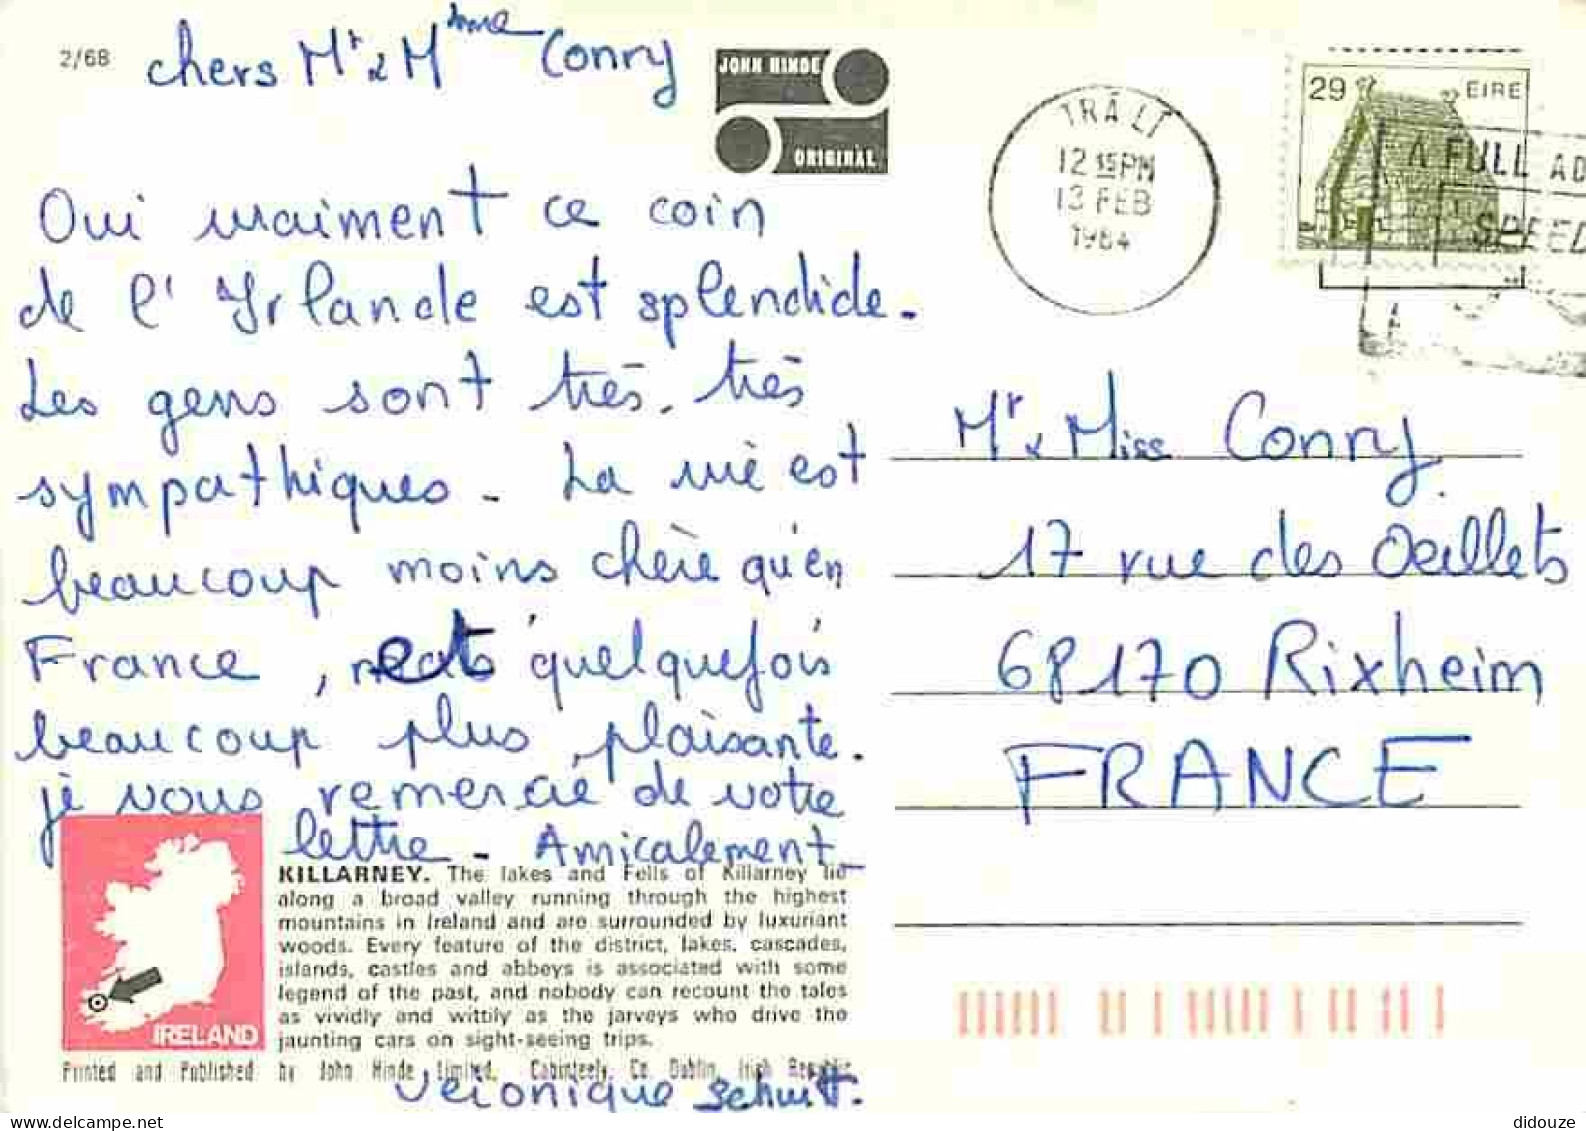 2/68
chers Mr & Mme Conry
JOHN HINDE
ORIGINAL
Oui vraiment ce coin
de l'Irlande est splendide.
Les gens sont très, très
sympathiques - La vie est
beaucoup moins chère qu'en
France, et quelquefois
beaucoup plus plaisante.
je vous remercie de votre
lettre - Amicalement
Véronique Schmitt.
KILLARNEY. The lakes and Fells of Killarney lie
along a broad valley running through the highest
mountains in Ireland and are surrounded by luxuriant
woods. Every feature of the district, lakes, cascades,
islands, castles and abbeys is associated with some
legend of the past, and nobody can recount the tales
as vividly and wittily as the jarveys who drive the
jaunting cars on sight-seeing trips.
IRELAND
Printed and Published by John Hinde Limited, Cabinteely, Co. Dublin, Irish Republic
TRÁ LÍ
12 15 PM
13 FEB
1984
29 EIRE
A FULL AD
SPEED
Mr & Miss Conry
17 rue des Oeillets
68170 Rixheim
FRANCE
didouze | delcampe.net